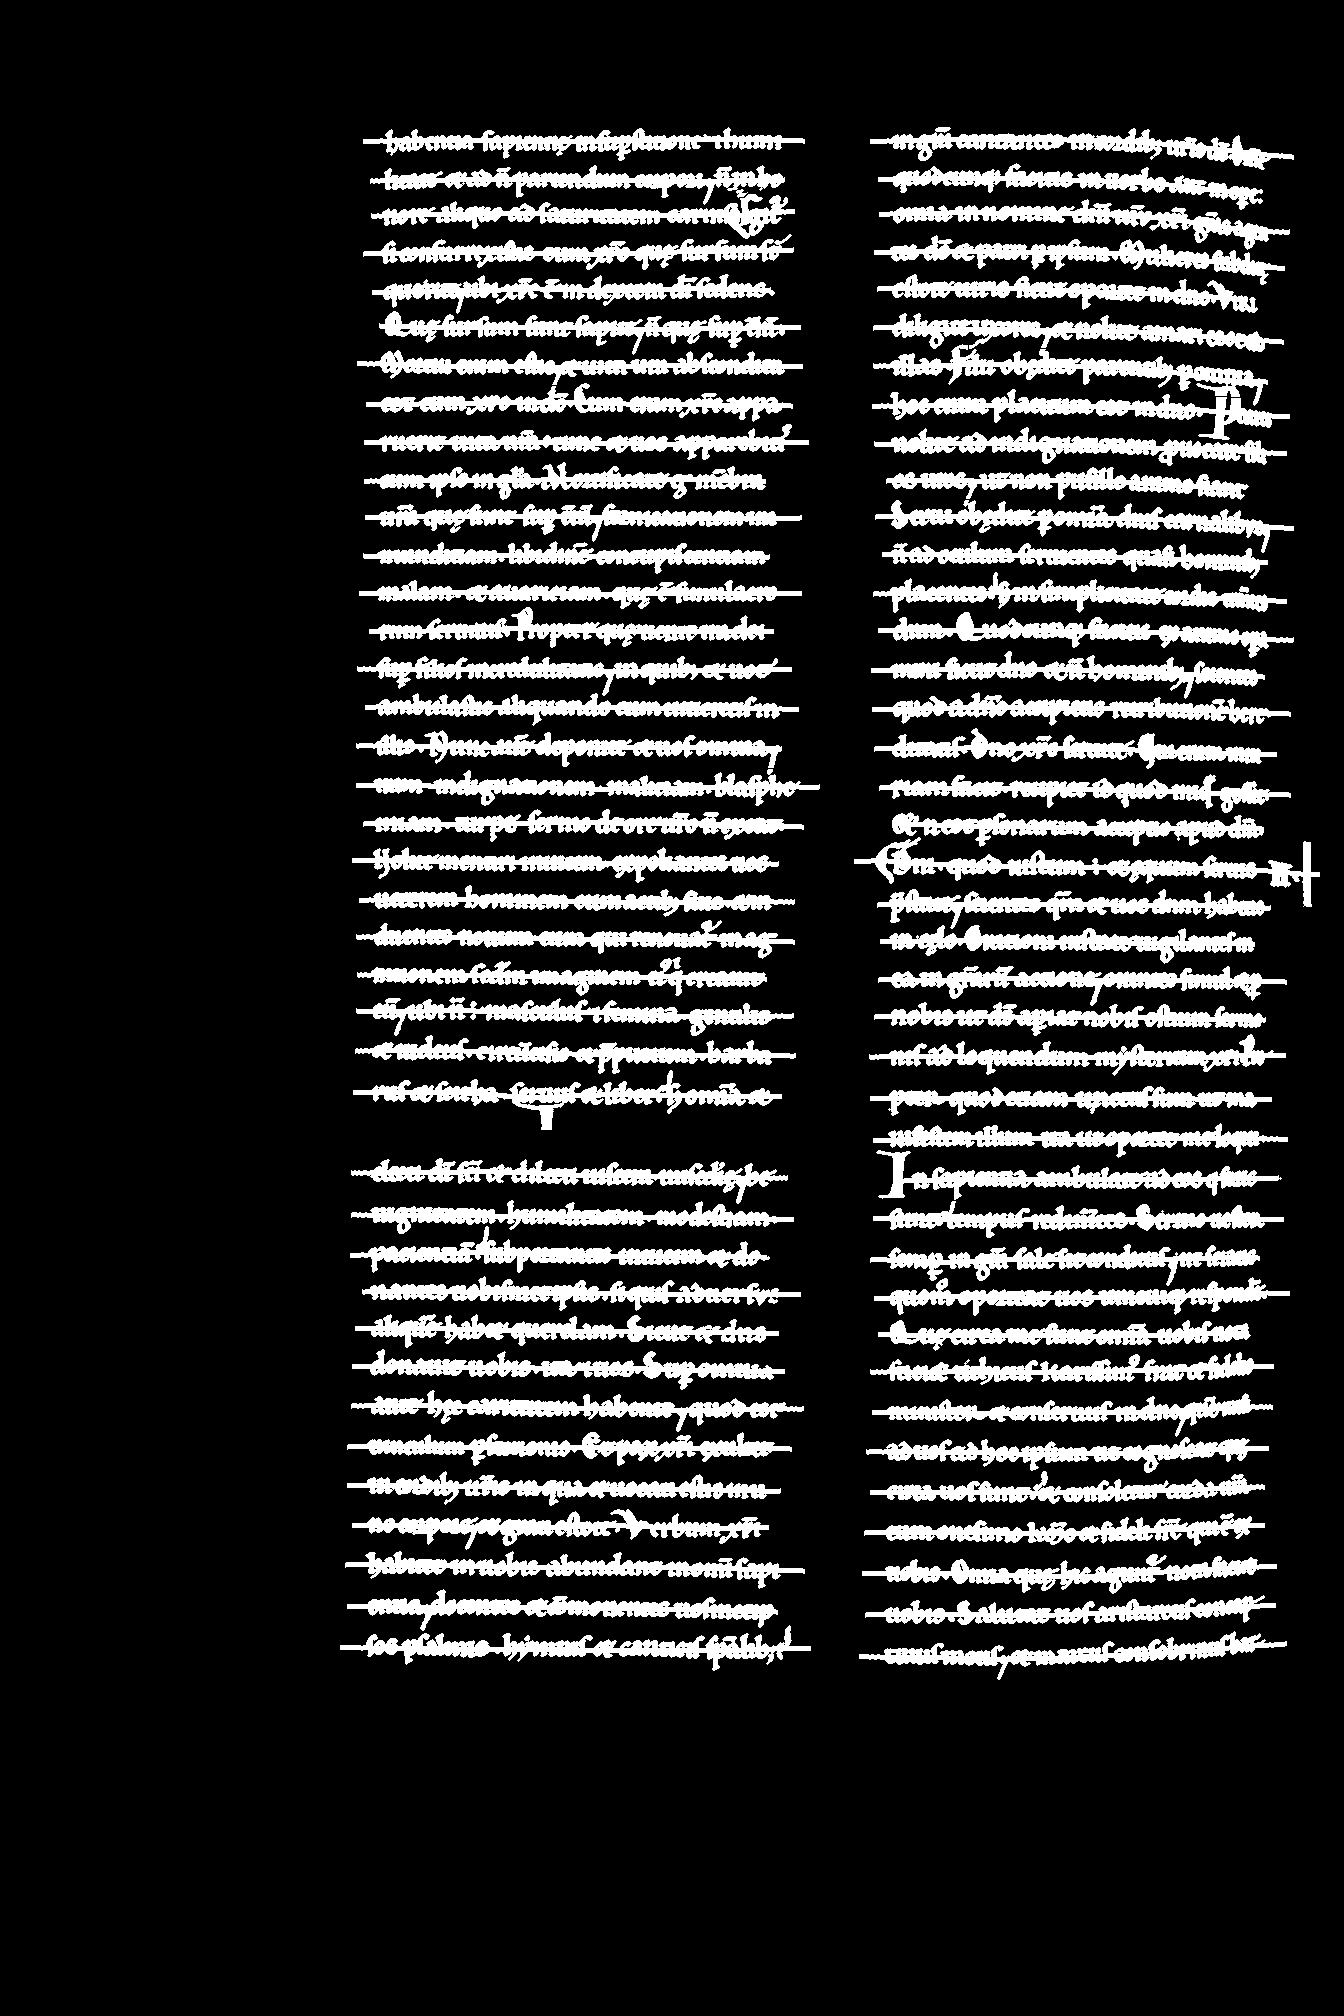 habentia sapientię in sup̱stitione ⁊ humi
litate et ad ñ parcendum corpori, ñ in ho
nore aliquo ad saturitatem carnis Igit᷑
si consurrexistis cum xp̄o quę sursum sꝰ
querite, ubi xp̄c ē in dextera dī sedens.
Quę sursum sunt sapite, ñ quę sup̱ t̄rā.
Mortui enim estis, et uita ura abscondita
est cum xp̄o in dō Cum enim xp̄c appa
ruerit uita ura. tunc et uos apparebitis
cum ipso in gl̄a Mortificate g̊ mēbra
ura quę sunt sup̱ t̄rā, fornicationem in
munditiam. libidinē concupiscentiam
malam. et auariciam. quę ē simulacro
rum seruitus. Propter quę uenit ira dei
sup̱ filios incredulitatis, in quib; et uos
ambulastis aliquando cum uiueretis in
illis. Nunc aūt deponite et uos omnia,
iram. indignationem. maliciam. blasphe
miam. turpē sermonē de ore uro ñ
Nolite mentiri inuicem expoliantes uos
ueterem hominem cum actib; suis et in
duentes nouum eum qui renouat᷑ in ag
nitionem scd̄m imaginem ei᷒ q̇ creauit
eū, ubi ñ ē masculus ⁊ femina gentilis
et iudeus. circūcisio et p̄putium. barba
rus et scitha. seruus et liber s; omīa et
electi dī scī et dilecti uiscera misc̄dię, be
nignitatem. humilitatem. modestiam.
pacientiā. subportantes inuicem et do
nantes uobismetipsis. si quis aduersus
aliquē habet querelam. Sicut et dn̄s
donauit uobis. ita et uos. Sup̱ omnia
autē hęc caritatem habentes, quod est
uinculum p̱fectionis. Et pax xp̄i exultet
in cordib; uris in qua et uocati estis in u
no corpore, et grati estote. Verbum xp̄i
habitet in uobis abundant̄ in omī sapi
entia, docentes et cōmonentes uosmetip
sos psalmis. hymnis et canticis sp̄alib;
in gr̄a cantantes in cordib; uris dō
quodcumq; facitis in uerbo aut in op̱e.
omīa in nomine dn̄i nr̄i ih̄u xp̄i gr̄as agen
tes dō et patri p̱ ipsum. Mulieres subditę
estote uiris sicut oportet in dno. Viri
diligite uxores, et nolite amari esse ad
illas Filii obędite parentib; p̱ omnia,
hoc enim placitum est in dno. Patres
nolite ad indignationem prouocare fili
os uros, ut non pusillo animo fiant
Serui obędite p̱ omīa dnis carnalib;,
ñ ad oculum seruientes quasi hominib;
placentes s; in simplicitate cordis
dnm. Quodcumq; facitis ex animo op̱a
mini sicut dno et ñ hominib;, scientes
quod a dn̄o accipietis retributionē here
ditatis. Dno xp̄o seruite. Qui enim iniu
riam facit recipiet id quod iniq̄ gessit
Et ñ est p̱sonarum acceptio apud dm̄.
Dn̄i. quod iustum ē et equum seruis
p̄state, scientes qm̄ et uos dnm habetis
in cęlo Orationi instate uigilantes in
ea in gr̄arū actione, orantes simul et p̱
nobis ut dš ap̱iat nobis ostium sermo
nis ad loquendum mysterium xp̄i
pter quod etiam uinctus sum ut ma
nifestem illum ita ut oportet me loqui
In sapientia ambulate ad eos q̇ foris
sunt tempus redimentes. Sermo uester
semp̱ in gr̄a sale sit conditus, ut sciatis
quom̊ oporteat uos unicuiq; respondere
Quę circa me sunt omīa uobis not
faciet tichicus karissimꝰ frat̄ et fidelis
minister et conseruus in dno, quē misi
ad uos ad hoc ipsum ut cognoscat quę
circa uos sunt. et consoletur corda urā
cum onesimo karis̄o et fideli fr̄e qui ē ex
uobis. Omīa quę hic agunt᷑ nota facient
uobis. Salutat uos aristarcus concap
tiuus meus, et marcus consobrinus bar